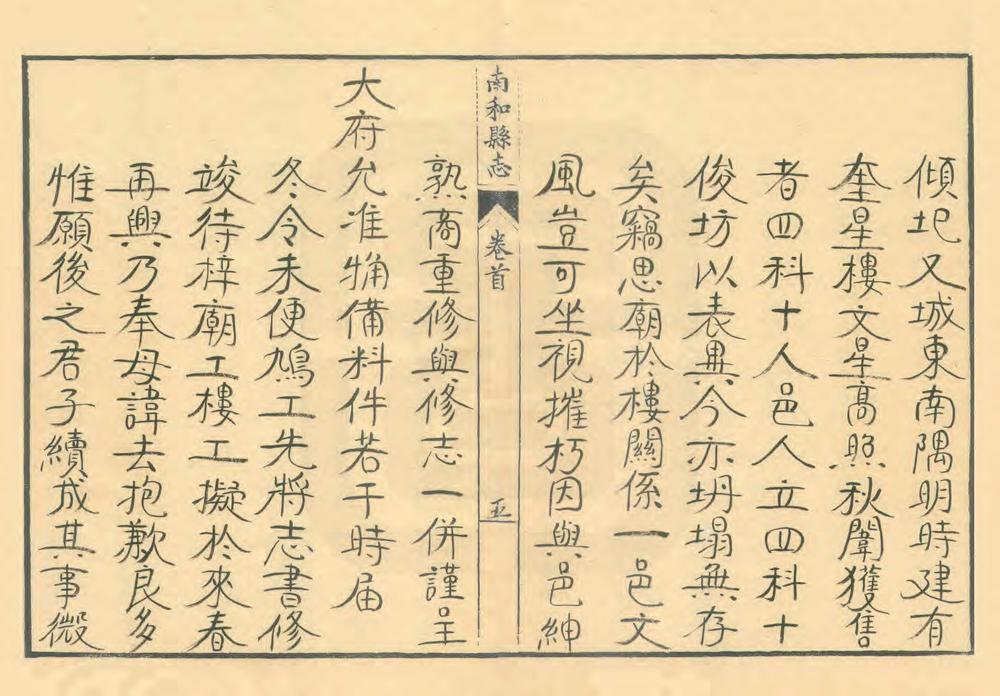 傾圮又城東南隅明時建有
奎星樓文星高照秋闈獲售
者四科十人邑人立四科十
俊坊以表異今亦坍塌無存
矣竊思廟於樓關係一邑文
風豈可坐視摧朽因與邑紳
南和縣志 卷首 五
熟商重修與修志一併謹呈
大府允准觕備料件若干時届
冬令未便鳩工先將志書修
竣待梓廟工樓工擬於來春
再興乃奉母諱去抱歉良多
惟願後之君子續成其事微